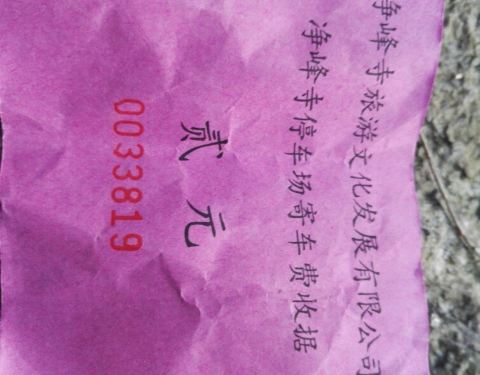 净峰寺旅游文化发展有限公司
净峰寺停车场寄车费收据
贰元
0033819